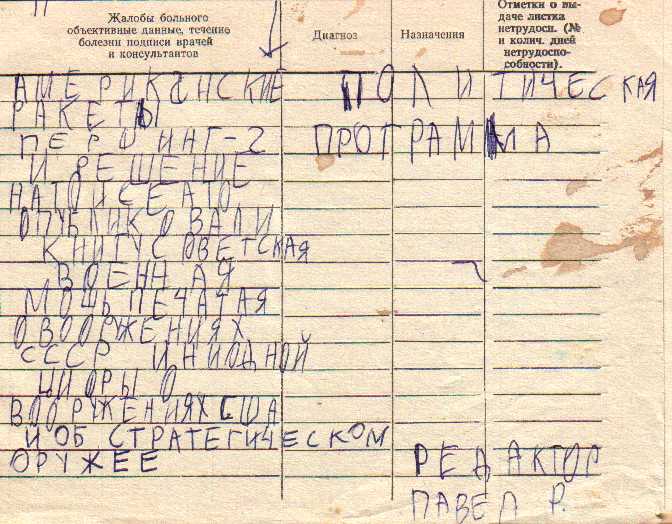 Жалобы больного
объективные данные, течение
болезни подписи врачей
и консультантов
Диагноз
Назначения
Отметки о вы-
даче листка
нетрудосп. (№
и колич. дней
нетрудоспо-
собности).
АМЕРИКАНСКИЕ
РАКЕТЫ
ПЕРШИНГ-2
И РЕШЕНИЕ
НАТО И СЕАТО
ОПУБЛИКОВАЛИ
КНИГУ СОВЕТСКАЯ
ВОЕННАЯ
МОЩЬ ПЕЧАТАЯ
О ВООРЖЕНИЯХ
СССР И НИ ОДНОЙ
ЦИФРЫ О
ВООРУЖЕНИЯХ США
И ОБ СТРАТЕГИЧЕСКОМ
ОРУЖЕЕ
ПОЛИТИЧЕСКАЯ
ПРОГРАММА
РЕДАКТОР
ПАВЕЛ Р.